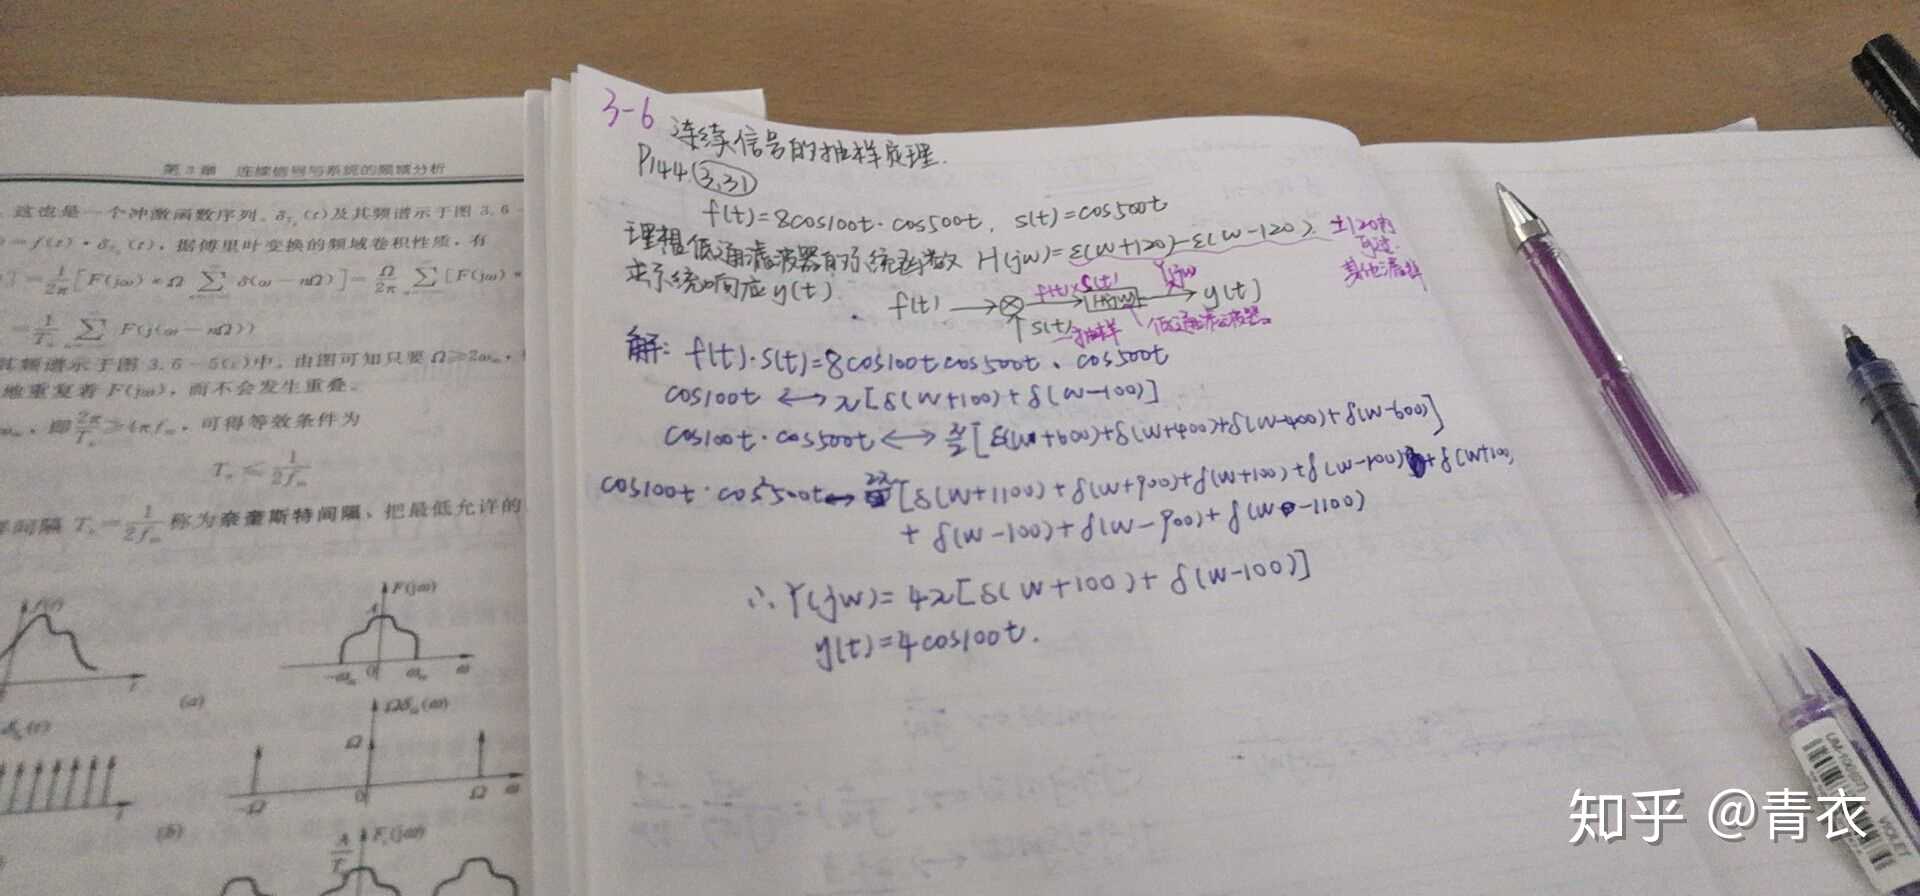 第3章 连续信号与系统的频域分析
这也是一个冲激函数序列。δ_{T_s}(t)及其频谱示于图 3.6-
=f(t)·δ_{T_s}(t), 据傅里叶变换的频域卷积性质, 有
]=1/2π[F(jω)*Ω∑δ(ω-nΩ)]=Ω/2π∑[F(jω)*
=1/T_s∑F(j(ω-nΩ))
其频谱示于图 3.6-5(c)中。由图可知只要 Ω≥2ω_m,
地重复着 F(jω), 而不会发生重叠。
ω_m, 即2π/T_s≥4πf_m, 可得等效条件为
T_s≤1/2f_m
间隔 T_s=1/2f_m 称为奈奎斯特间隔、把最低允许的
f(t)
t
(a)
F(jω)
A
-ω_m 0 ω_m ω
(t)
t
(b)
Ωδ_Ω(ω)
Ω
-Ω 0 Ω ω
A/T_s F_s(jω)
3-6 连续信号的抽样定理.
P144.(3.31)
f(t)=8cos100t·cos500t, s(t)=cos500t
理想低通滤波器的系统函数 H(jw)=ε(w+120)-ε(w-120).
±120内
可过.
其他滤掉
求系统响应y(t)
f(t) → ⊗ f(t)×s(t) → H(jw) Y(jw) → y(t)
s(t) →抽样 低通滤波器。
解: f(t)·s(t)=8cos100tcos500t·cos500t
cos100t ↔ π[δ(w+100)+δ(w-100)]
cos100t·cos500t ↔ π/2[δ(w+600)+δ(w+400)+δ(w-400)+δ(w-600)]
[δ(w+1100)+δ(w+900)+δ(w+100)+δ(w-100)+δ(w+100)
+δ(w-100)+δ(w-900)+δ(w-1100)
∴Y(jw)=4π[δ(w+100)+δ(w-100)]
y(t)=4cos100t.
UM-100(07)
VIOLET
知乎 @青衣